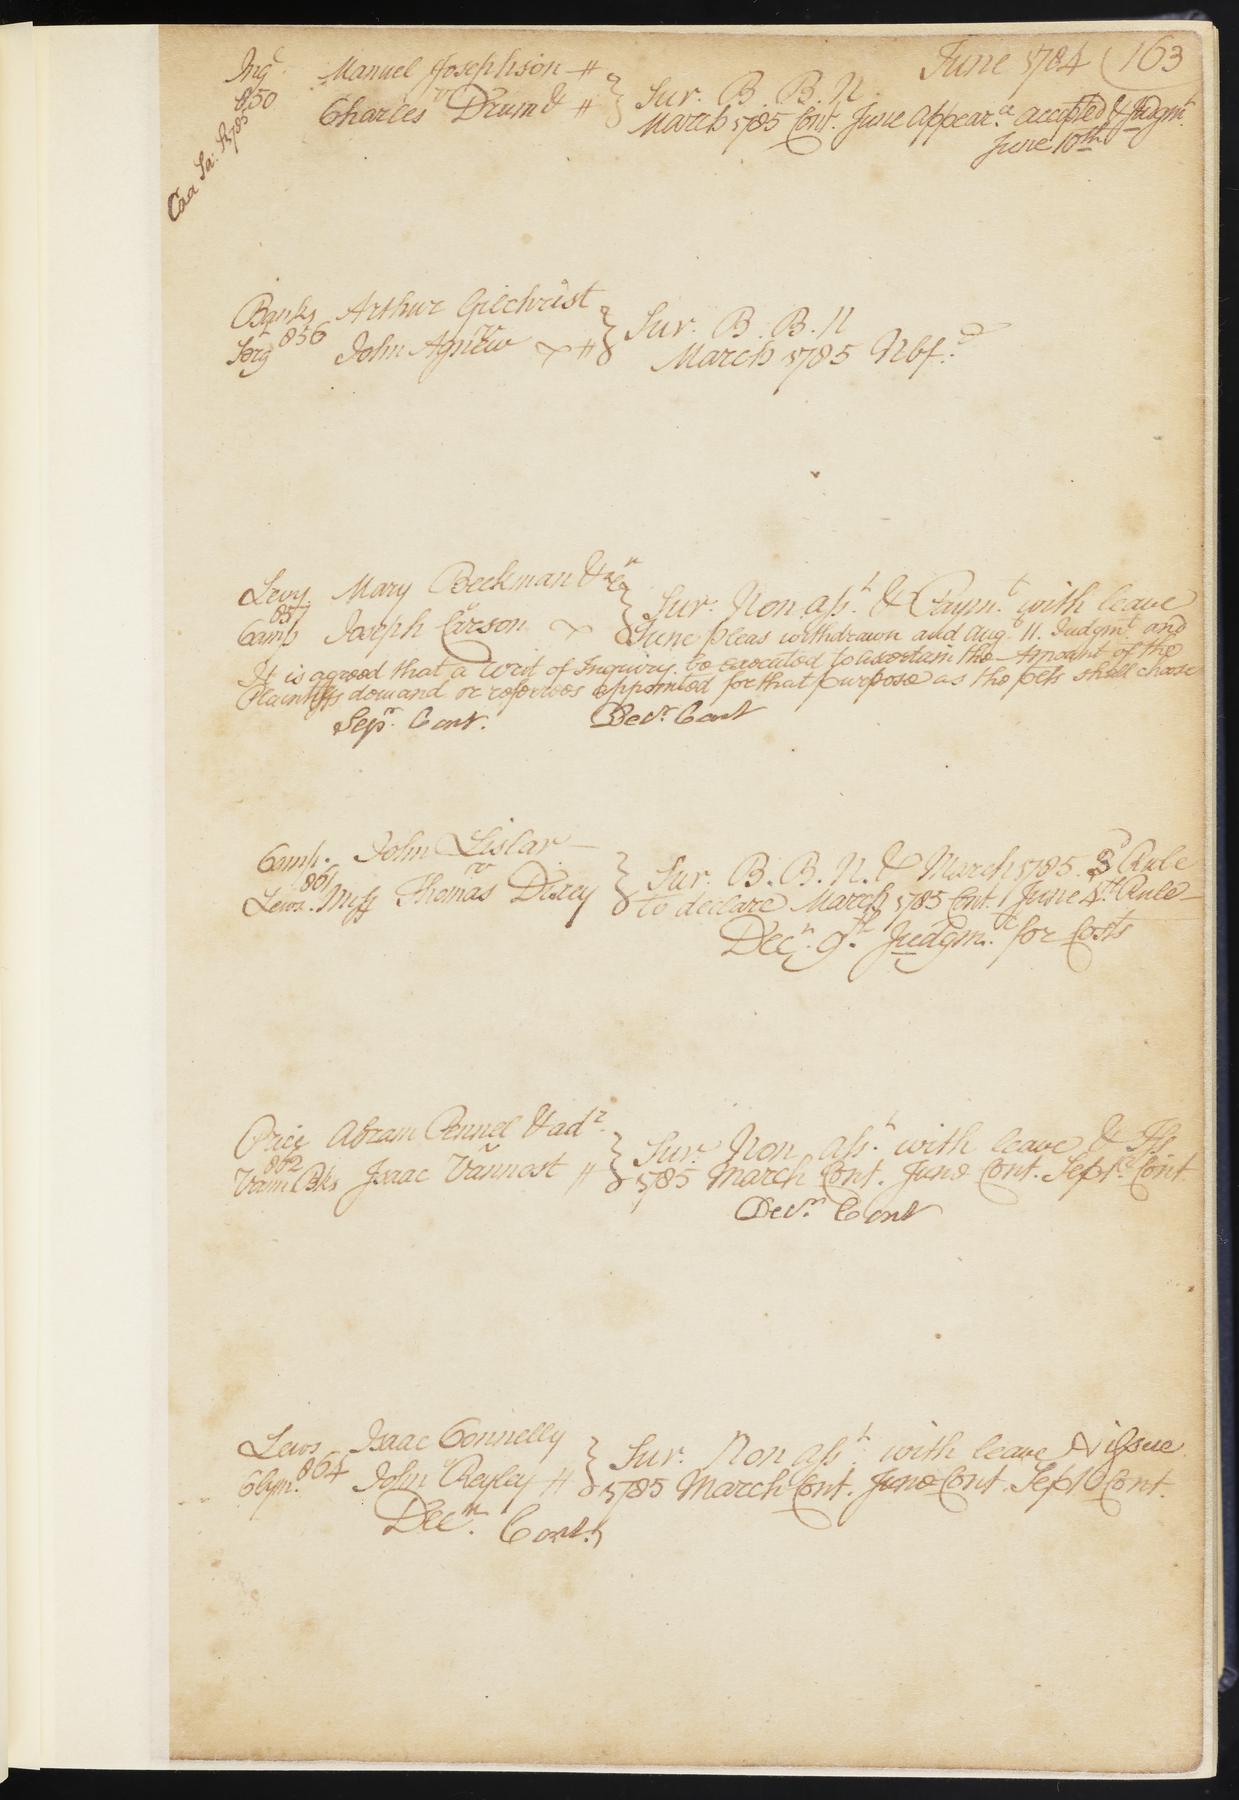 June 1784 (163
Ingl. Manuel Josephson #
850 v
Charles Drum & # } Sur. B. B. N.
March 1785 Cont. June appear.ce accepted & Judgm.t
June 10th
Caa Sa: S 1785
Banks Arthur Gilchrist
Serg 856 v
John Agnew # } Sur. B. B. N
March 1785 Nbf.
Levy Mary Beekman & al Ex
857 v
Camp Joseph Carson } Sur. Non ass.t & Paym.t with leave
June pleas withdrawn and Aug.t 11. Judgm.t and
It is agreed that a Writ of Inquiry be executed to ascertain the Amount of the
Plaintiffs demand or referrees appointed for that purpose as the plts shall choose
Sepr. Cont. Decr. Cont
Camp. John Lislar
861 v
Lews. Miff Thomas Dixey } Sur. B. B. N. & March 1785. S Rule
to declare March 1785 Cont. June 4th Rule
Decr. 9th Judgm.t for Costs
Price Abram Pennel & adr.
862 v
Vann Bks Isaac Vannost # } Sur. Non ass.t with leave & Iss
1785 March Cont. June Cont. Septr. Cont.
Decr. Cont
Lews Isaac Connelly
864 v
Clym. John Reyley # } Sur. Non ass.t with leave & issue
1785 March Cont. June Cont. Sept Cont.
Decr. Cont.